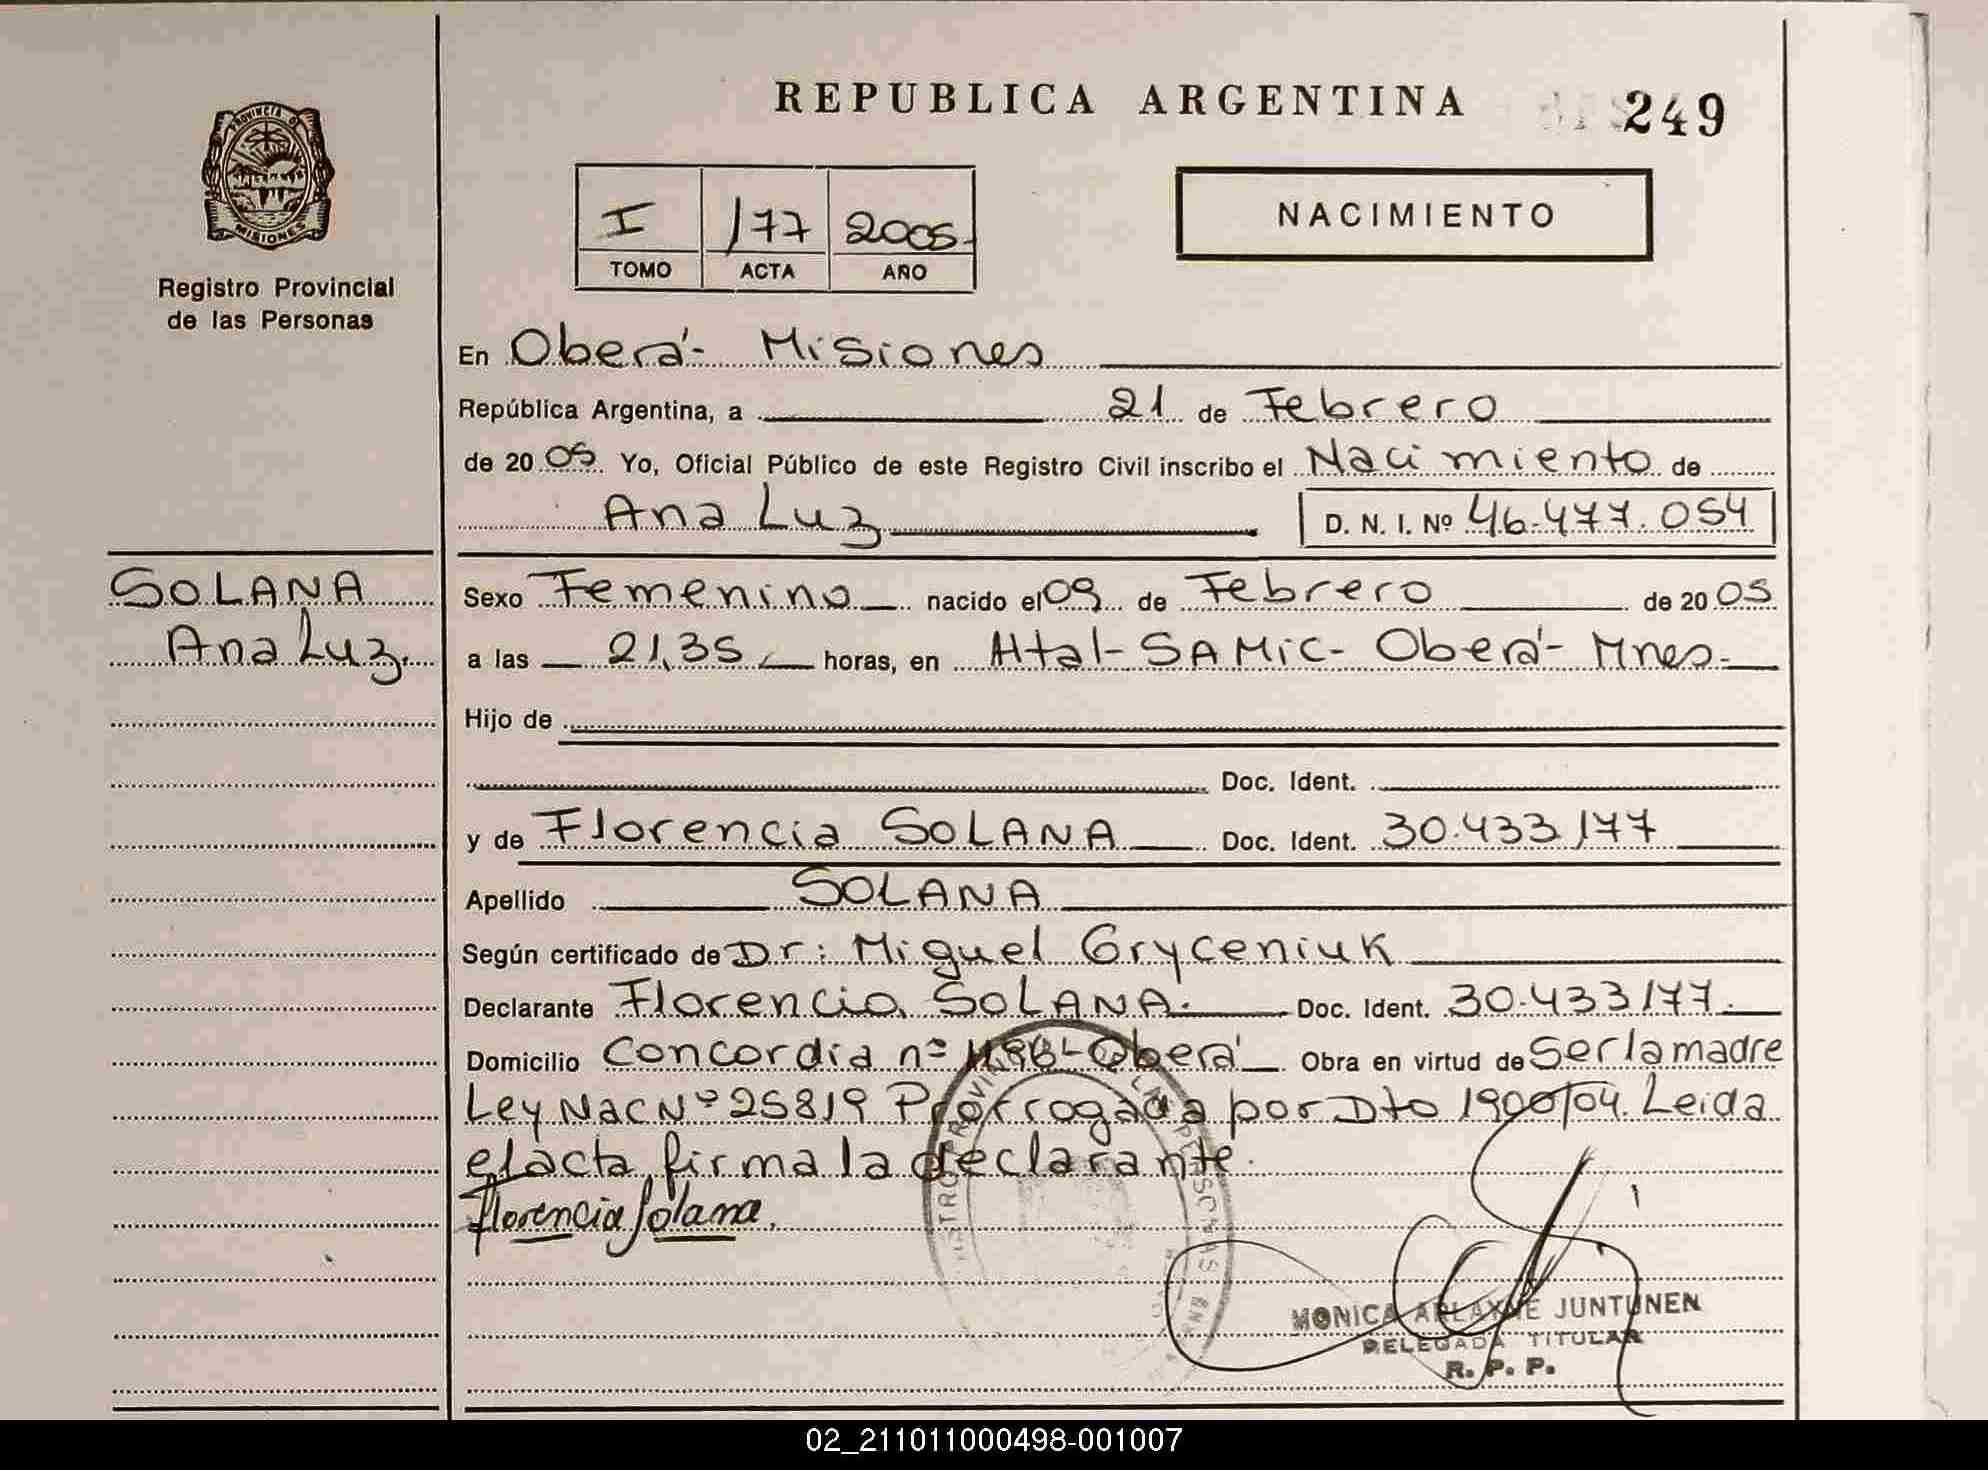 REPUBLICA ARGENTINA
249
PROVINCIA DE
MISIONES
Registro Provincial
de las Personas
I 177 2005.
TOMO ACTA AÑO
NACIMIENTO
En Oberá- Misiones
República Argentina, a 21 de Febrero
de 20 05. Yo, Oficial Público de este Registro Civil inscribo el Nacimiento de
Ana Luz D. N. I. Nº 46.477.054
SOLANA
Ana Luz.
Sexo Femenino nacido el 09 de Febrero de 20 05
a las 21,35 horas, en Htal-SAMIC- Oberá- Mnes-
Hijo de
Doc. Ident.
y de Florencia SOLANA Doc. Ident. 30.433.177
Apellido SOLANA
Según certificado de Dr: Miguel Gryceniuk
Declarante Florencia SOLANA. Doc. Ident. 30.433.177.
Domicilio Concordia nº Oberá Obra en virtud de Ser la madre
Ley Nac Nº 25819 Prorrogada por Dto 1900/04. Leida
el acta firma la declarante.
Florencia Solana.
MONICA ARLAYNE JUNTUNEN
DELEGADA TITULAR
R. P. P.
02_211011000498-001007